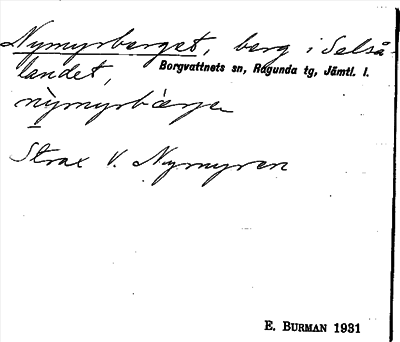 Nymyrberget, berg i Selså-
landet,
Borgvattnets sn, Ragunda tg, Jämtl. l.
nỳmyrbàrje
Strax V. Nymyren
E. BURMAN 1931